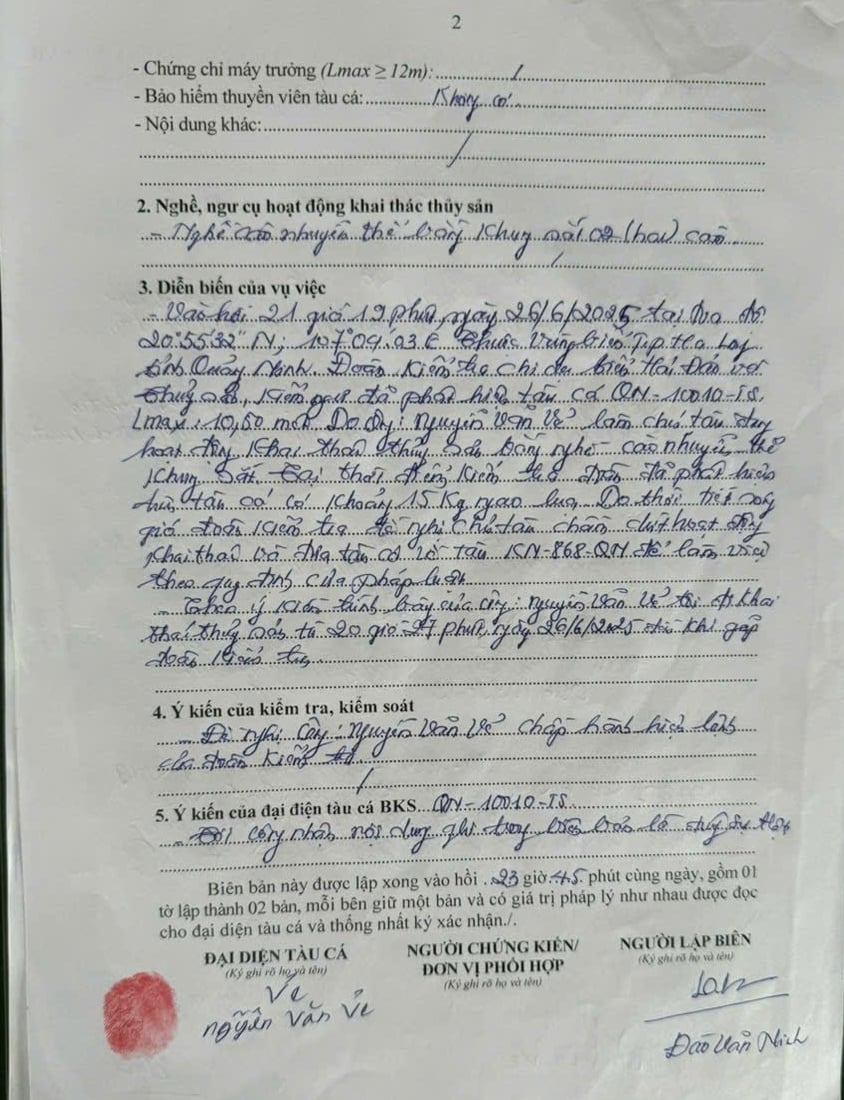 2
- Chứng chỉ máy trưởng (Lmax ≥ 12m): /
- Bảo hiểm thuyền viên tàu cá: Không có
- Nội dung khác:
/
2. Nghề, ngư cụ hoạt động khai thác thủy sản
- Nghề cào nhuyễn thể bằng khung sắt có cào
/
3. Diễn biến của vụ việc
- Vào hồi 21 giờ 19 phút, ngày 26/6/2025 tại tọa độ
20°55'32" N; 107°09'03 E thuộc vùng biển Tp Hạ Long
tỉnh Quảng Ninh. Đoàn kiểm tra Chi cục biển Hải Đảo và
thủy sản, kiểm ngư đã phát hiện tàu cá QN-10010-TS.
Lmax: 10,50 mét Do Ông: Nguyễn Văn Vẻ làm chủ tàu đang
hoạt động khai thác thủy sản bằng nghề cào nhuyễn thể
khung sắt. Tại thời điểm kiểm tra Đoàn đã phát hiện
trên tàu cá có khoảng 15 Kg ngao lụa. Do thời tiết sóng
gió đoàn kiểm tra đề nghị chủ tàu chấm dứt hoạt động
khai thác và đưa tàu cá về tàu KN-868-QN để làm việc
theo quy định của pháp luật
- Theo ý kiến trình bày của Ông: Nguyễn Văn Vẻ tôi đi khai
thác thủy sản từ 20 giờ 27 phút, ngày 26/6/2025 đến khi gặp
đoàn kiểm tra
4. Ý kiến của kiểm tra, kiểm soát
- Đề nghị Ông: Nguyễn Văn Vẻ chấp hành hiệu lệnh
của đoàn kiểm tra
/
5. Ý kiến của đại diện tàu cá BKS QN-10010-TS
- Tôi công nhận nội dung ghi trong biên bản là đúng sự thật
Biên bản này được lập xong vào hồi 23 giờ 45 phút cùng ngày, gồm 01
tờ lập thành 02 bản, mỗi bên giữ một bản và có giá trị pháp lý như nhau được đọc
cho đại diện tàu cá và thống nhất ký xác nhận./.
ĐẠI DIỆN TÀU CÁ
(Ký ghi rõ họ và tên)
Vẻ
Nguyễn Văn Vẻ
NGƯỜI CHỨNG KIẾN/
ĐƠN VỊ PHỐI HỢP
(Ký ghi rõ họ và tên)
NGƯỜI LẬP BIÊN
(Ký ghi rõ họ và tên)
Đào Văn Ninh